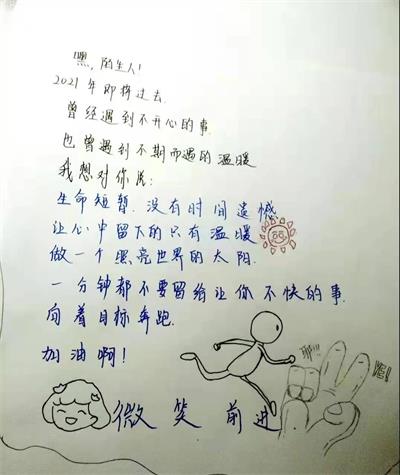 嘿，陌生人！
2021年即将过去.
曾经遇到不开心的事.
也曾遇到不期而遇的温暖
我想对你说：
生命短暂.没有时间遗憾.
让心中留下的只有温暖
做一个照亮世界的太阳.
一分钟都不要留给让你不快的事.
向着目标奔跑.
加油啊！
耶!!!
YE!
微笑前进